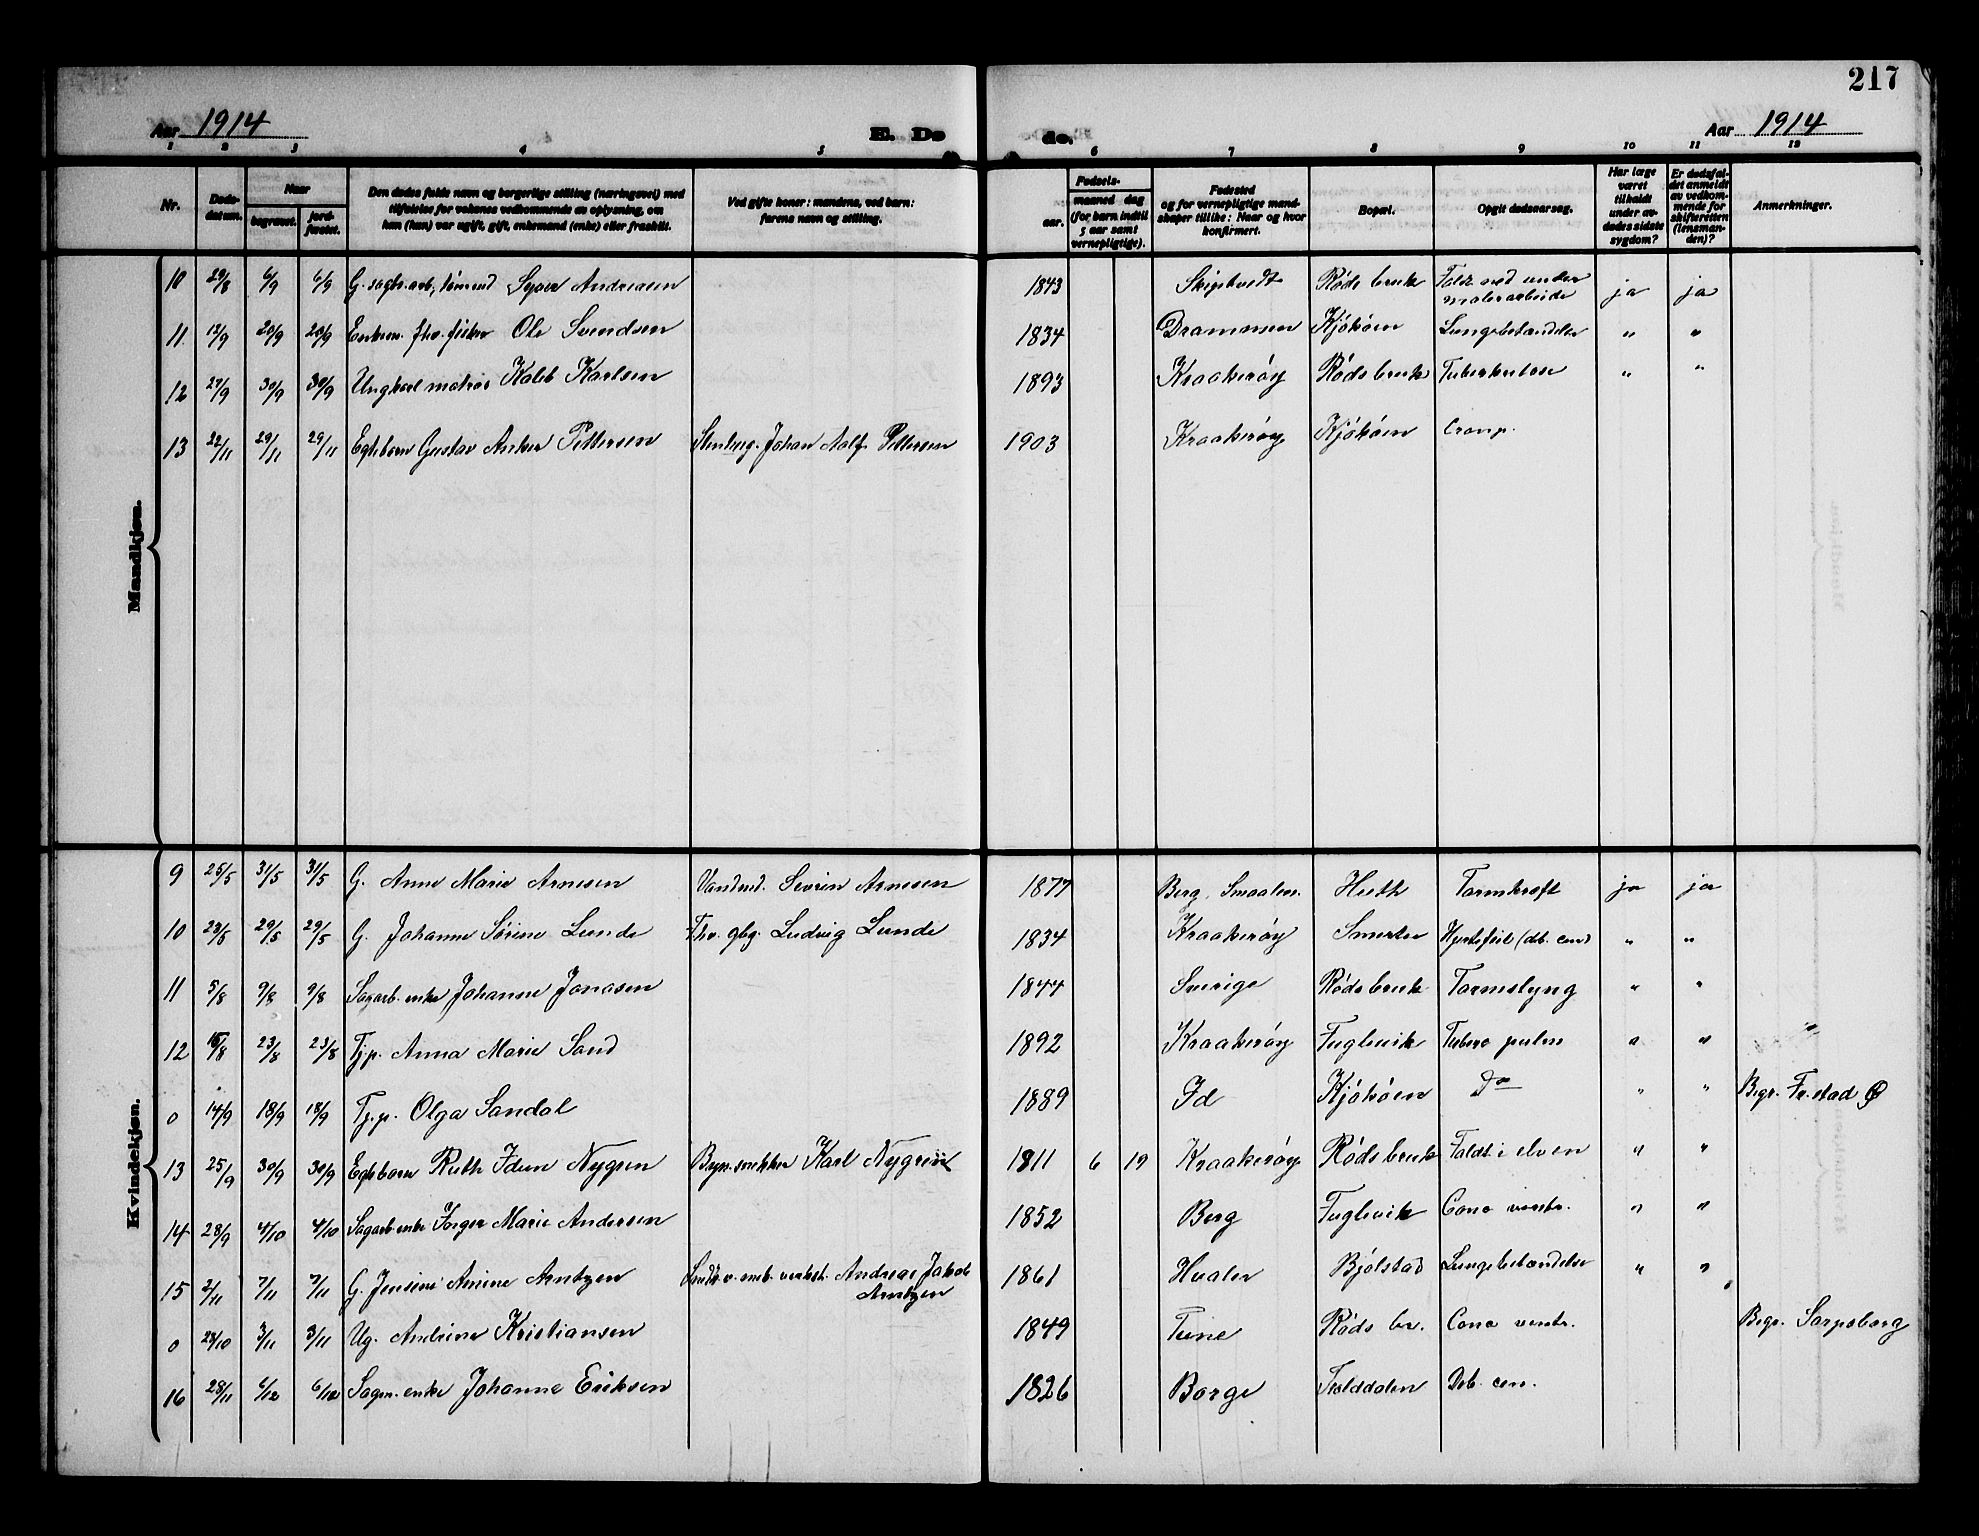 217
Aar 1914 E. Dø
de. Aar 1914
1 2 3 4 5 6 7 8 9 10 11 12
Nr.
Døds-
datum.
Naar
begravet.
jord-
fæstet.
Den dødes fulde navn og borgerlige stilling (næringsvei) med
tilføielse for voksnes vedkommende av oplysning, om
hun (han) var ugift, gift, enkemand (enke) eller fraskilt.
Ved gifte koner: mandens, ved barn:
farens navn og stilling.
Fødsels-
aar.
maaned dag
(for barn indtil
5 aar samt
vernepligtige).
Fødested
og for vernepligtige mand-
skaper tillike: Naar og hvor
konfirmert.
Bopæl.
Opgit dødsaarsag.
Har læge
været
tilkaldt
under av-
dødes sidste
sygdom?
Er dødsfal-
det anmeldt
av vedkom-
mende for
skifteretten
(lensman-
den)?
Anmerkninger.
Mandkjøn.
10 29/8 6/9 6/9 G. sagbr.arb, tømmd Syver Andreasen 1843 Skiptvedt Røds bruk Faldt ned under
malerarbeide ja ja
11. 12/9 20/9 20/9 Enkem. fhv. fisker Ole Svendsen 1834 Drammen Kjøkøen Lungebetændelse " "
12 27/9 30/9 30/9 Ungkarl matros Kaleb Karlsen 1893 Kraakerøy Røds bruk Tuberkulose " "
13 22/11 29/11 29/11 Egtebarn Gustav Anker Pettersen Stenhug. Johan Adolf Pettersen 1903 Kraakerøy Kjøkøen Cramp.
Kvindekjøn.
9 25/5 31/5 31/5 G. Anne Marie Arnesen Sevrin Arnesen 1877 Berg, Smaalen. Huth Tarmkræft ja ja
10 23/5 29/5 29/5 G. Johanne Sørine Lunde Fhv. gbg. Ludvig Lunde 1834 Kraakerøy Smerter Hjertefeil (deb. cord) " "
11 5/8 9/8 9/8 Sagarb. enke Johanne Jonasen 1844 Sverige Røds bruk Tarmslyng " "
12 18/8 23/8 23/8 Tjp. Anna Marie Sand 1892 Kraakerøy Fuglevik Tuberc pulm " "
0 14/9 18/9 18/9 Tj.p. Olga Sandal 1889 Id Kjøkøen Do " " Begr. Fr.stad
13 25/9 30/9 30/9 Egtebarn Ruth Idun Nygren Bygn.snekker Karl Nygren 1811 6 19 Kraakerøy Røds bruk Faldt i elven " "
14 28/9 4/10 4/10 Sagarb enke Inger Marie Andersen 1852 Berg Fuglevik Canc ventr. " "
15 2/11 7/11 7/11 G. Jensine Amine Arntzen Smed v. mek. verkst. Andreas Jakob
Arntzen 1861 Hvaler Bjølstad Lungebetændelse " "
0 29/10 3/11 3/11 Ug. Andrine Kristiansen 1849 Tune Røds br. Canc ventr. Begr. Sarpsborg
16 28/11 6/12 6/12 Sagm. enke Johanne Eriksen 1826 Borge Trolddalen Deb. cor.